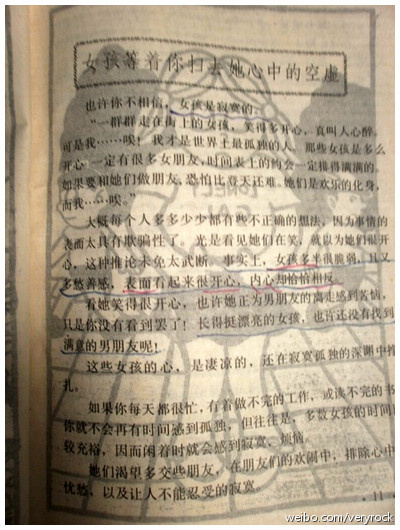 女孩等着你扫去她心中的空虚
也许你不相信，女孩是寂寞的。
“一群群走在街上的女孩，笑得多开心，真叫人心醉。
可是我……唉！我才是世界上最孤独的人，那些女孩是多么
开心，一定有很多女朋友，时间表上的约会一定排得满满的。
如果要和她们做朋友，恐怕比登天还难。她们是欢乐的化身，
而我……唉。”
大概每个人多多少少都有些不正确的想法，因为事情的
表面太具有欺骗性了。光是看见她们在笑，就以为她们很开
心，这种推论未免太武断。事实上，女孩多半很脆弱，且又
多愁善感，表面看起来很开心，内心却恰恰相反。
看她笑得很开心，也许她正为男朋友的离走感到苦恼，
只是你没有看到罢了！长得挺漂亮的女孩，也许还没有找到
满意的男朋友呢！
这些女孩的心，是凄凉的，还在寂寞孤独的深渊中挣
扎。
如果你每天都很忙，有着做不完的工作，或读不完的书
你就不会再有时间感到孤独，但往往是，多数女孩的时间
较充裕，因而闲着时就会感到寂寞、烦恼。
她们渴望多交些朋友，在朋友们的欢闹中，排除心中
忧愁，以及让人不能忍受的寂寞
11
weibo.com/veryrock